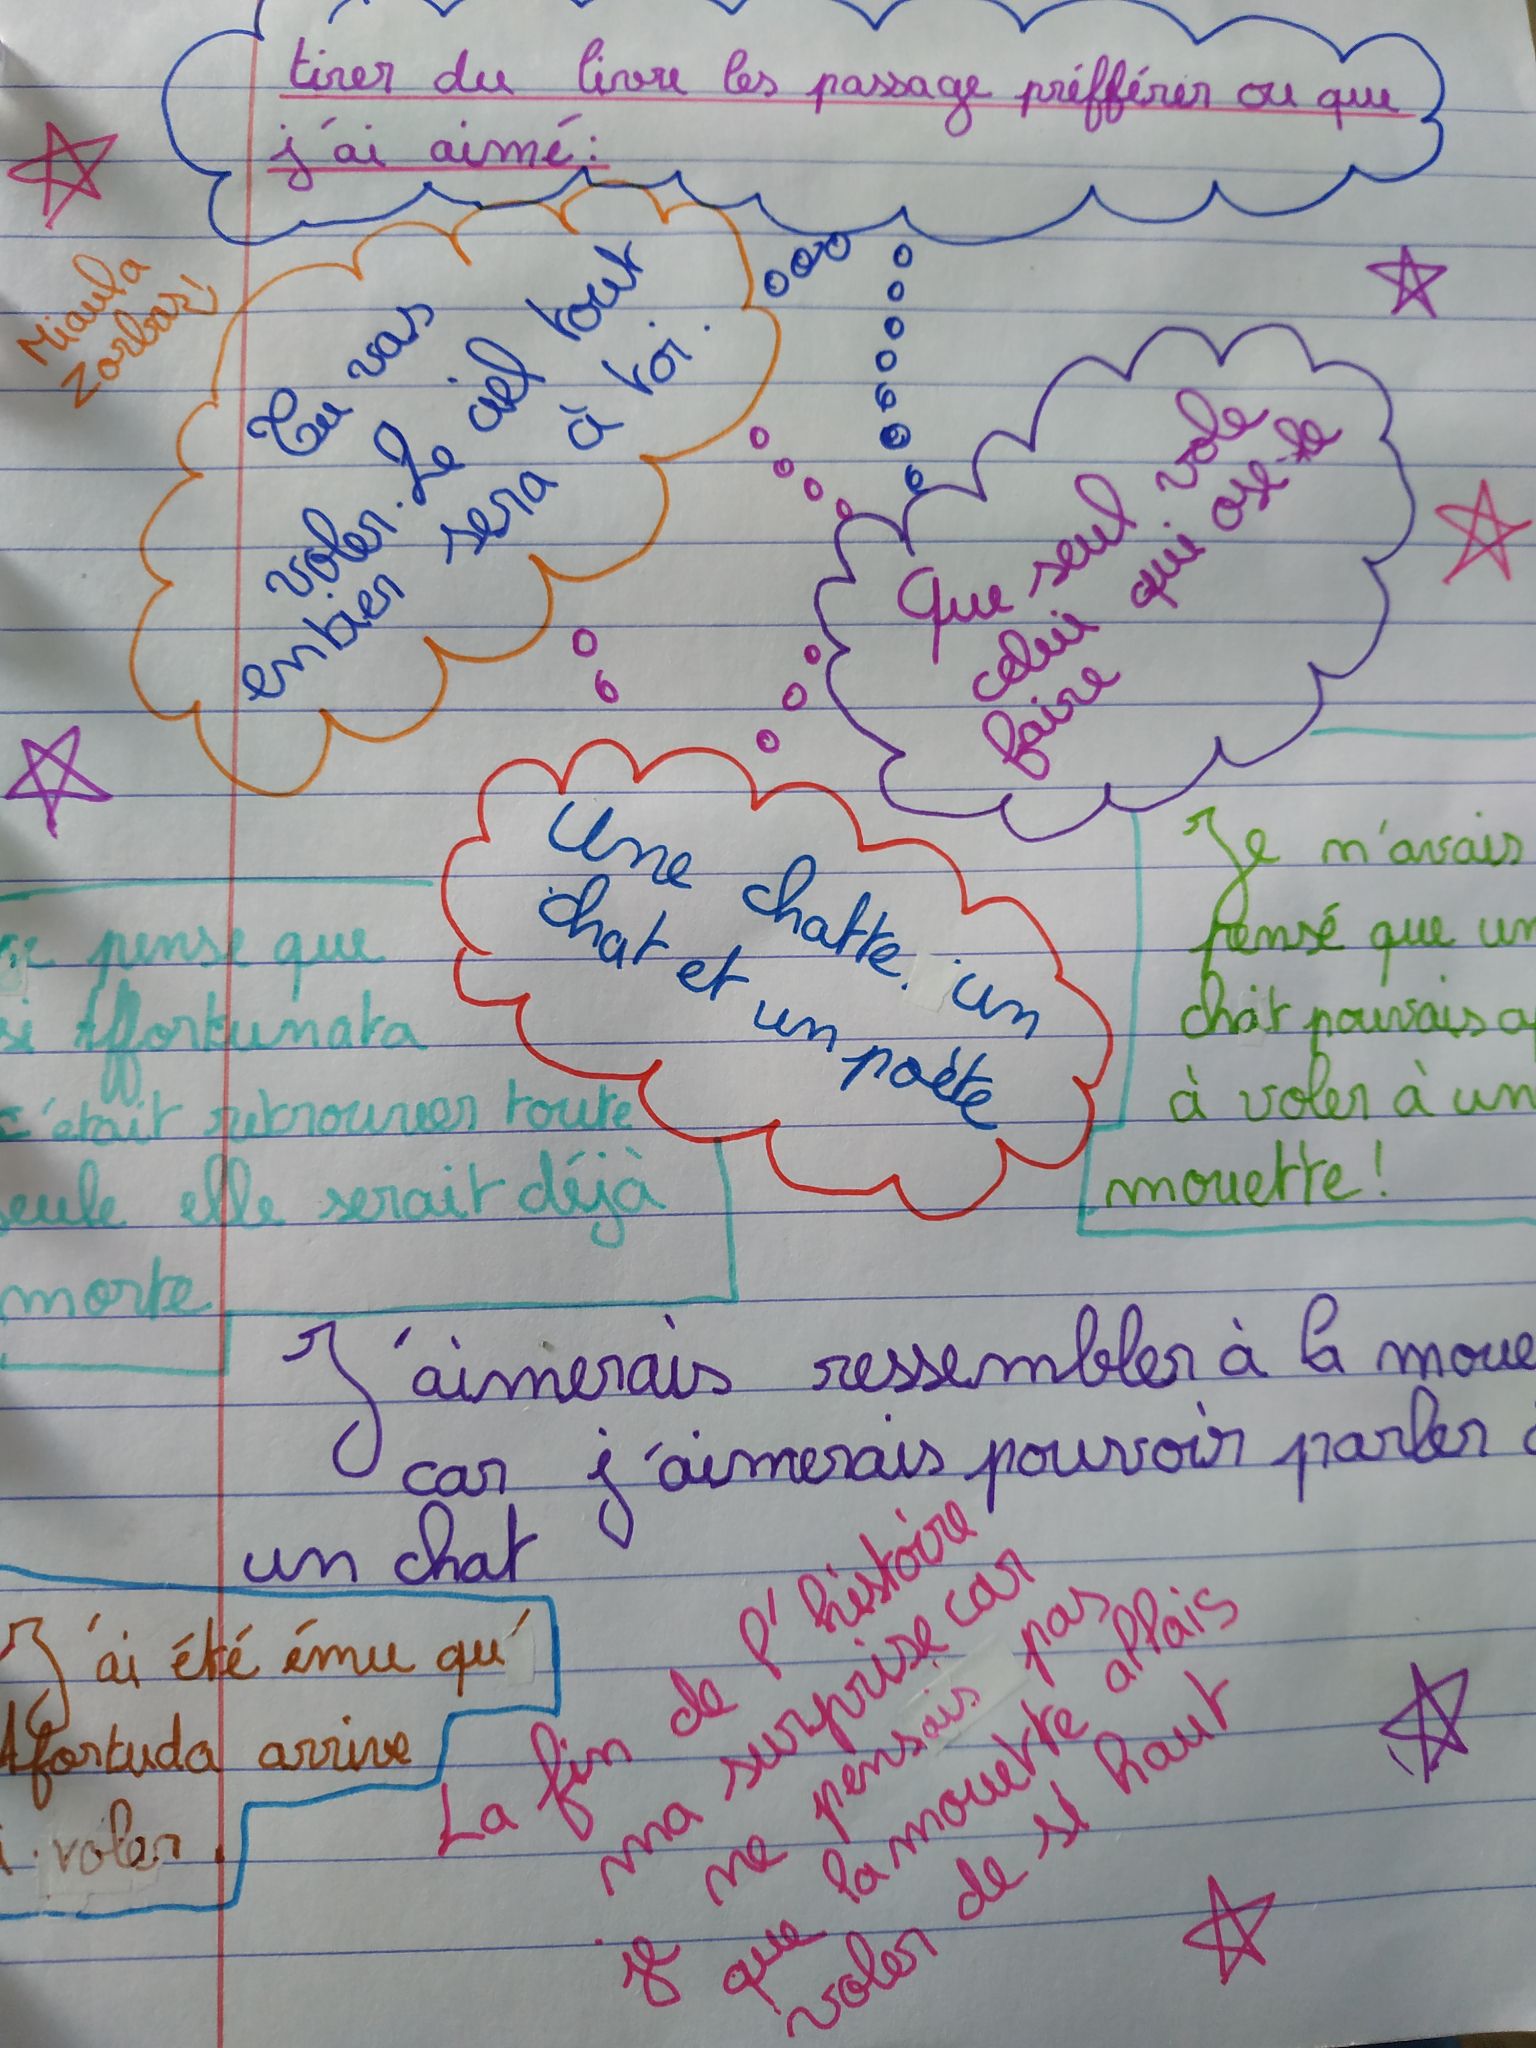 tirer du livre les passage préfférer ou que
j'ai aimé:
Miaula
Zorbas
Tu vas
voler. Le ciel tout
entier sera à toi.
Que seul vole
celui qui ose le
faire
Une chatte, un
chat et un poéte
Je n'avais
pensé que un
chat pouvais
à voler à un
mouette!
pense que
si Affortunata
c'était retrouver toute
seule elle serait déjà
morte
J'aimerais ressembler à la moue
car j'aimerais pouvoir parler à
un chat
J'ai été ému qu'
Afortuda arrive
voler.
La fin de l'histoire
ma surprise car
je ne pensais pas
que la mouette allais
voler de si haut